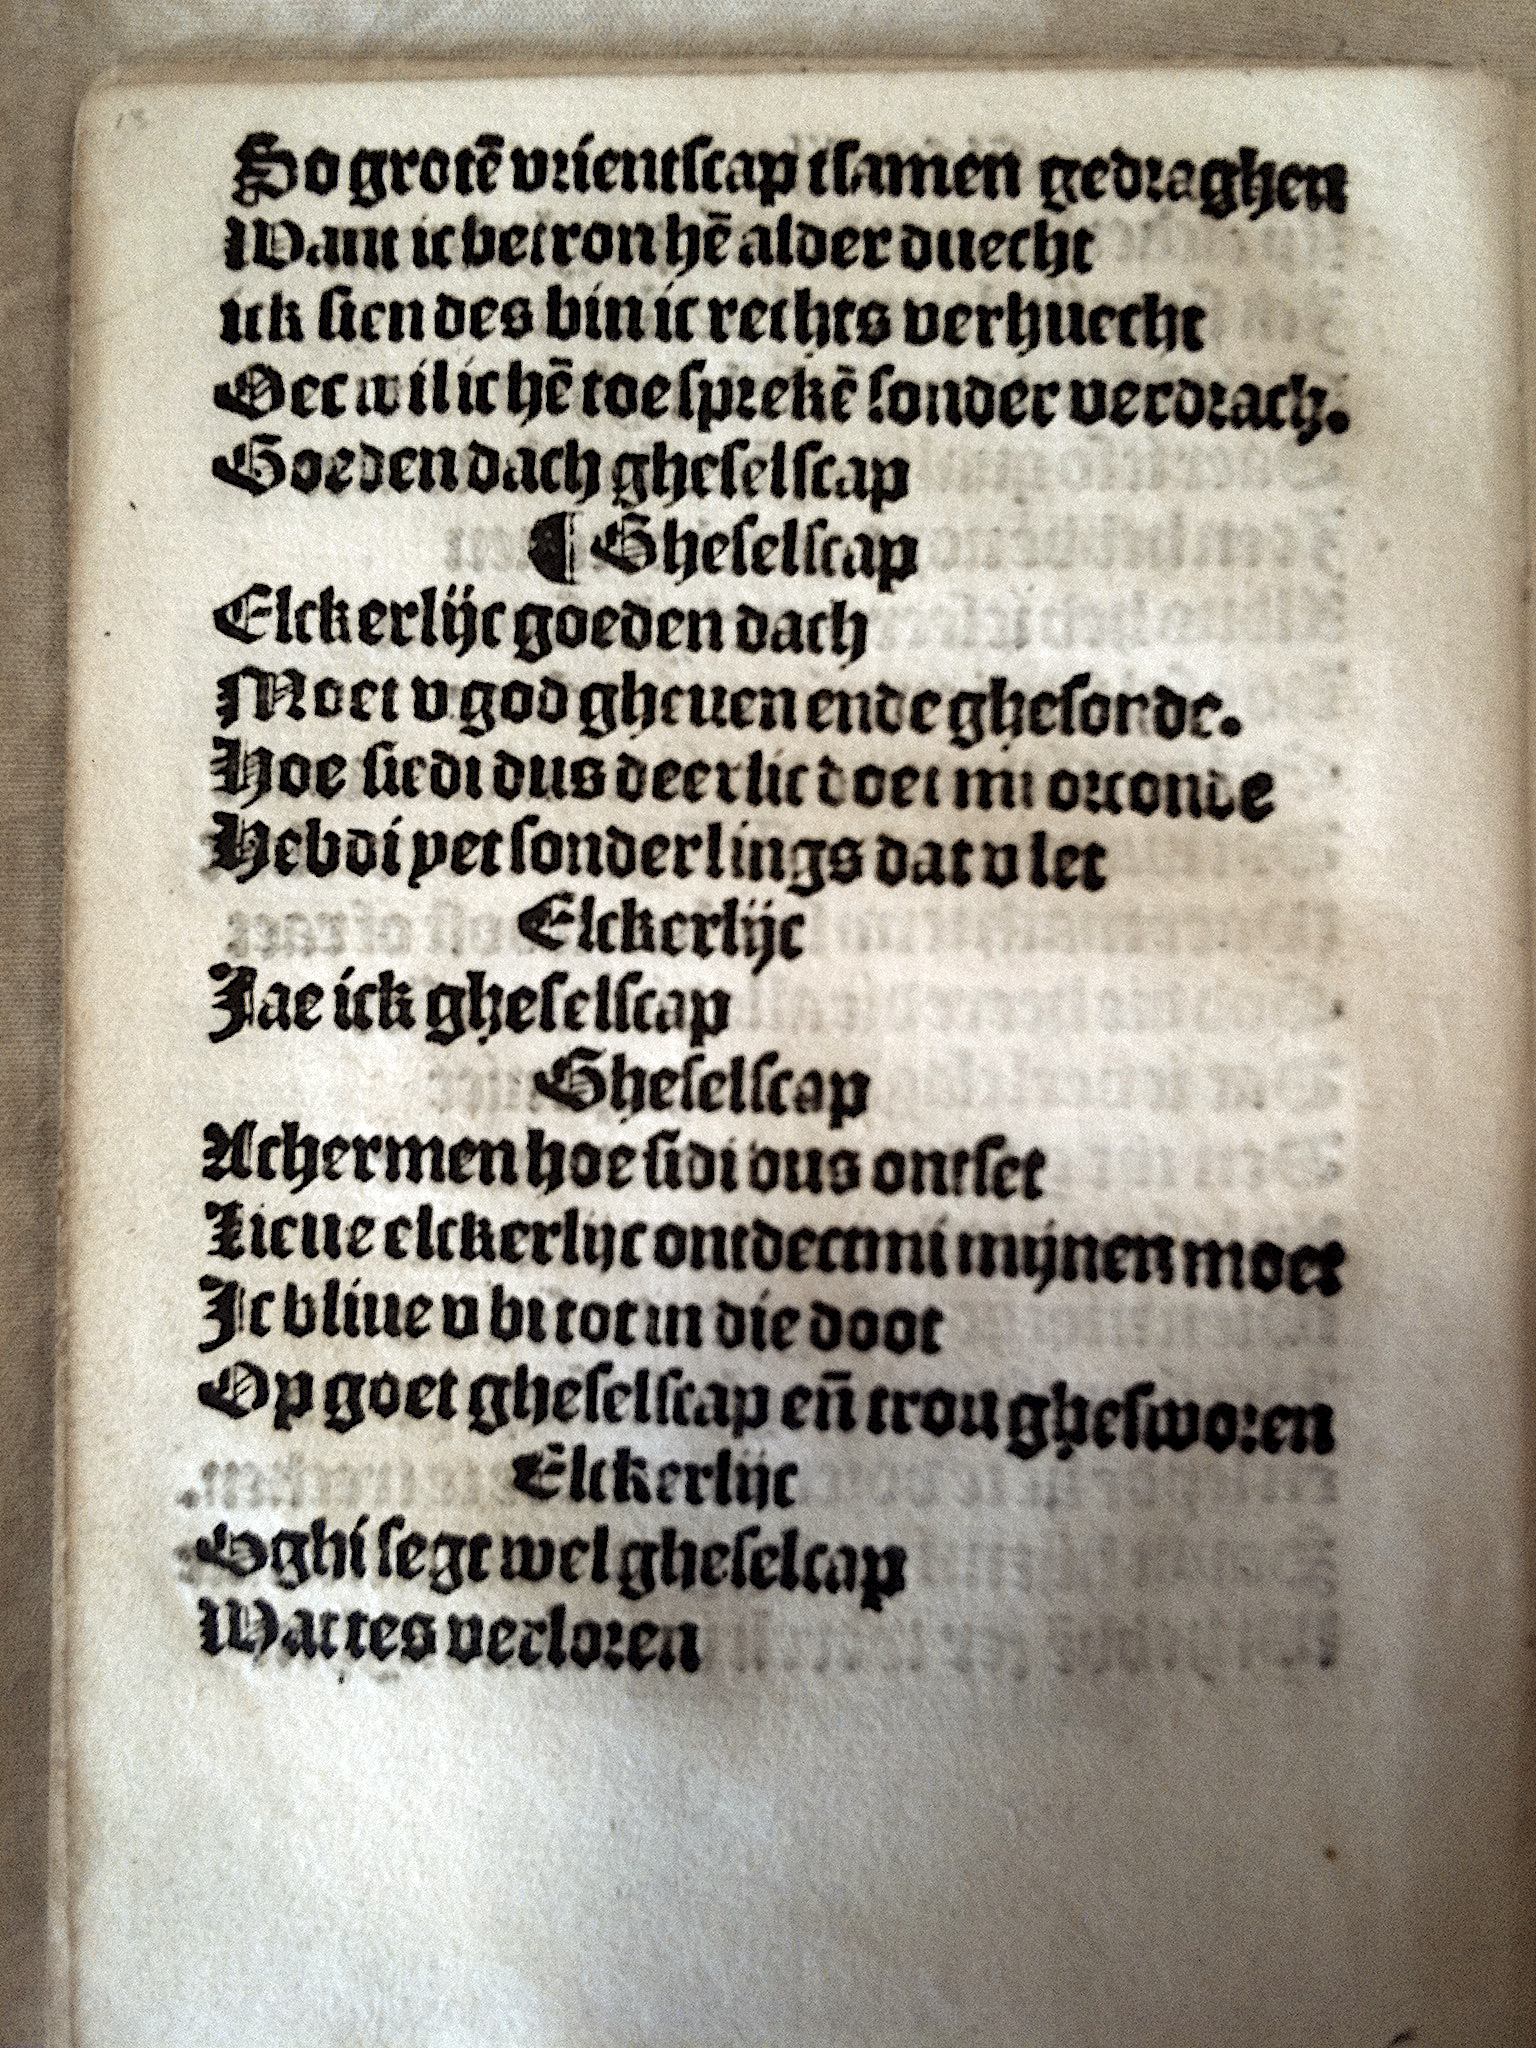 So grotē vrientscap tsamen gedraghen
Want ic betron hē alder duecht
ick sien des bin ic rechts verhuecht
Oec wil ic hē toe sprekē sonder verdrach.
Goeden dach gheselscap
¶ Gheselscap
Elckerlijc goeden dach
Moet v god gheuen ende ghesonde.
Hoe siedi dus deerlic doet mi orconde
Hebdi yet sonderlings dat v let
Elckerlijc
Jae ick gheselscap
Gheselscap
Achermen hoe sidi dus ontset
Lieue elckerlijc ontdect mi mijnen moet
Jc bliue v bi tot in die doot
Op goet gheselscap eñ trou ghesworen
Elckerlijc
Ghi segt wel gheselcap
Wattes verloren